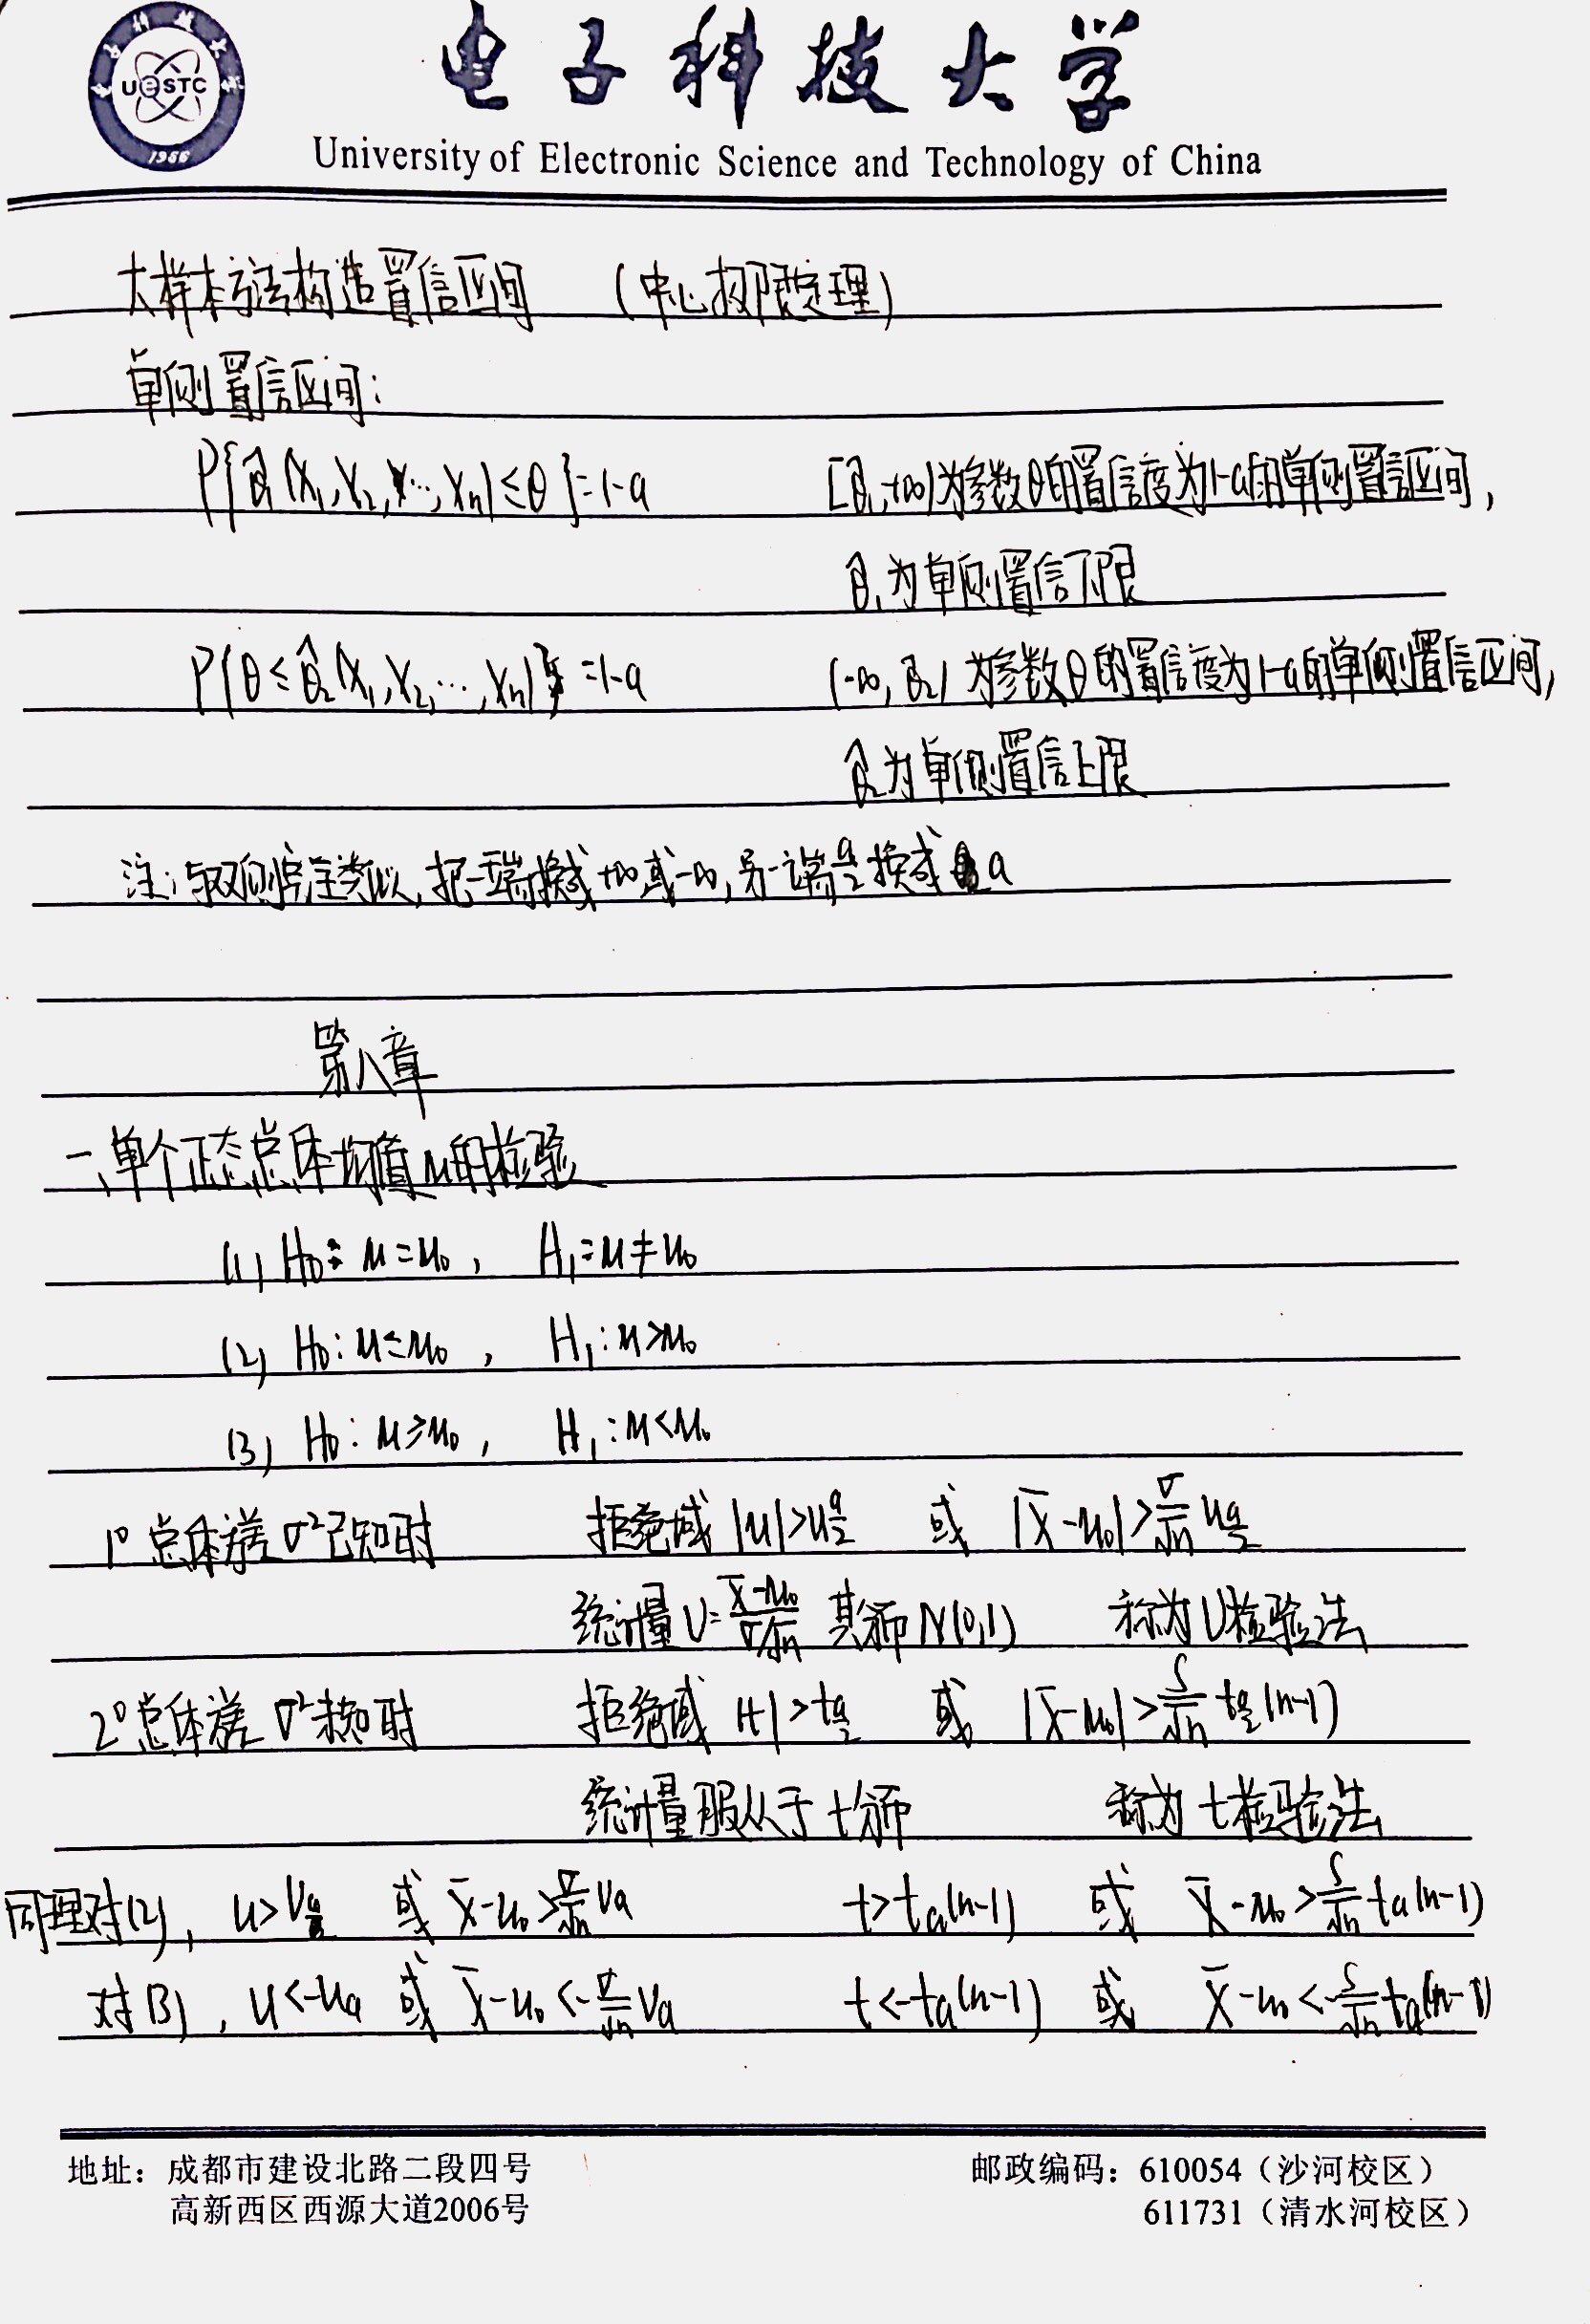 电子科技大学
UESTC
1956
University of Electronic Science and Technology of China
大样本方法构造置信区间 (中心极限定理)
单侧置信区间:
P{θ̂₁(X₁,X₂,…,Xₙ)≤θ}=1-α [θ̂₁,+∞)为参数θ的置信度为1-α的单侧置信区间,
θ̂₁为单侧置信下限
P{θ≤θ̂₂(X₁,X₂,…,Xₙ)}=1-α (-∞,θ̂₂)为参数θ的置信度为1-α的单侧置信区间,
θ̂₂为单侧置信上限
注:与双侧方法类似,把一端换成+∞或-∞,另一端α/2换成α
第八章
一、单个正态总体均值μ的检验
(1) H₀: μ=μ₀, H₁: μ≠μ₀
(2) H₀: μ≤μ₀, H₁: μ>μ₀
(3) H₀: μ≥μ₀, H₁: μ<μ₀
1° 总体方差σ²已知时 拒绝域 |u|>u_{α/2} 或 |X̄-μ₀|>σ/√n u_{α/2}
统计量U=(X̄-μ₀)/(σ/√n) 其分布N(0,1) 称为U检验法
2° 总体方差σ²未知时 拒绝域 |t|>t_{α/2} 或 |X̄-μ₀|>S/√n t_{α/2}(n-1)
统计量服从于t分布 称为t检验法
同理对(2), u>U_α 或 X̄-μ₀>σ/√n U_α t>t_α(n-1) 或 X̄-μ₀>S/√n t_α(n-1)
对(3), u<-u_α 或 X̄-μ₀<-σ/√n U_α t<-t_α(n-1) 或 X̄-μ₀<-S/√n t_α(n-1)
地址:成都市建设北路二段四号 邮政编码:610054(沙河校区)
高新西区西源大道2006号 611731(清水河校区)